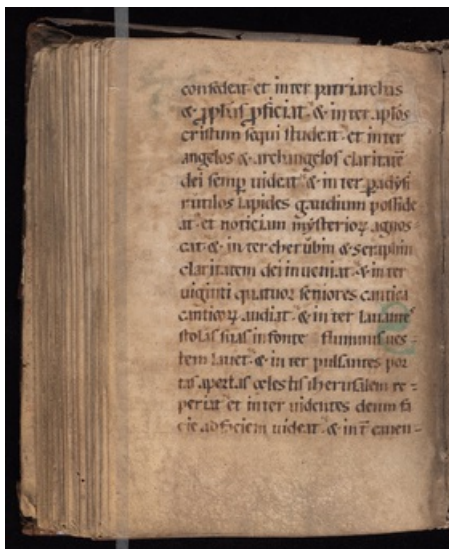 consedeat et inter patriarchas
& ꝓphas ꝓficiat & inter aplos
cristum sequi studeat et inter
angelos & archangelos claritatē
dei semꝑ uideat & inter ꝑadysi
rutilos lapides gaudium posside
at et noticiam mysterioꝝ agnos
cat & inter cherubin & seraphin
claritatem dei inueniat & inter
uiginti quatuor seniores cantica
canticoꝝ audiat & inter lauantes
stolas suas in fonte fluminis ues-
tem lauet & inter pulsantes por
tas apertas celestis iherusalem re-
periat et inter uidentes deum fa
cie ad faciem uideat & int̄ canen-